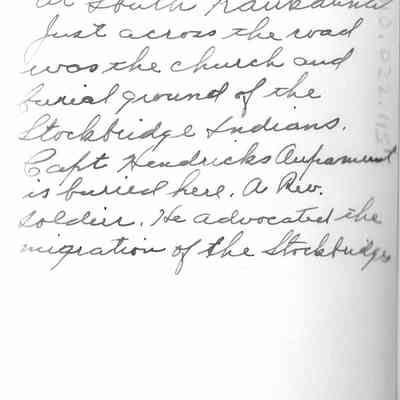 at South Kaukauna
Just across the road
was the church and
burial ground of the
Stockbridge Indians.
Capt Hendricks Aupamunt
is buried here. A Rev.
soldier. He advocated the
migration of the Stockbridges